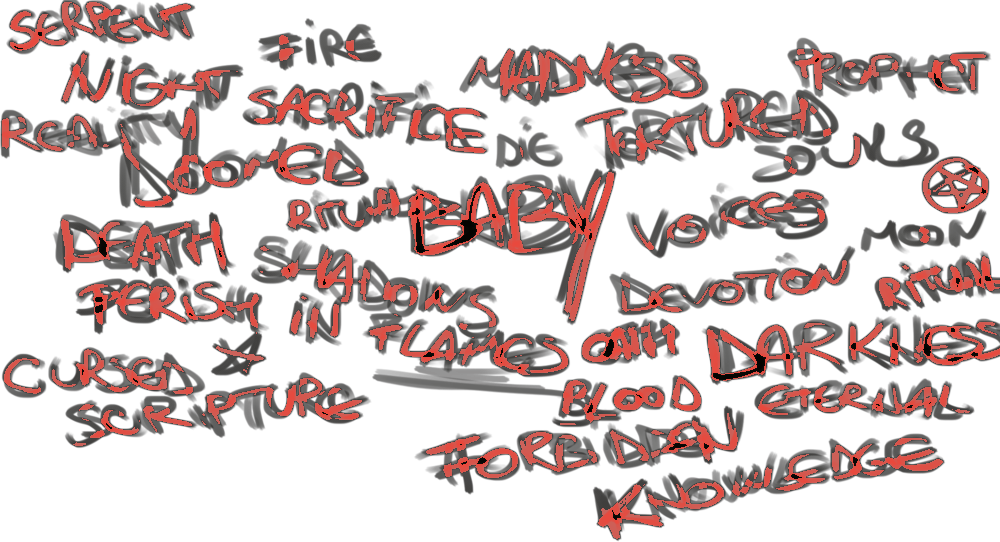 SERPENT
FIRE
NIGHT
MADNESS
PROPHET
SACRIFICE
REALITY
DIE
TORTURED
SOULS
DOOMED
RITUAL
BABY
VOICES
MOON
DEATH
SHADOWS
DEVOTION
RITUAL
PERISH
IN
FLAMES
OATH
DARKNESS
CURSED
SCRIPTURE
BLOOD
ETERNAL
FORBIDDEN
KNOWLEDGE